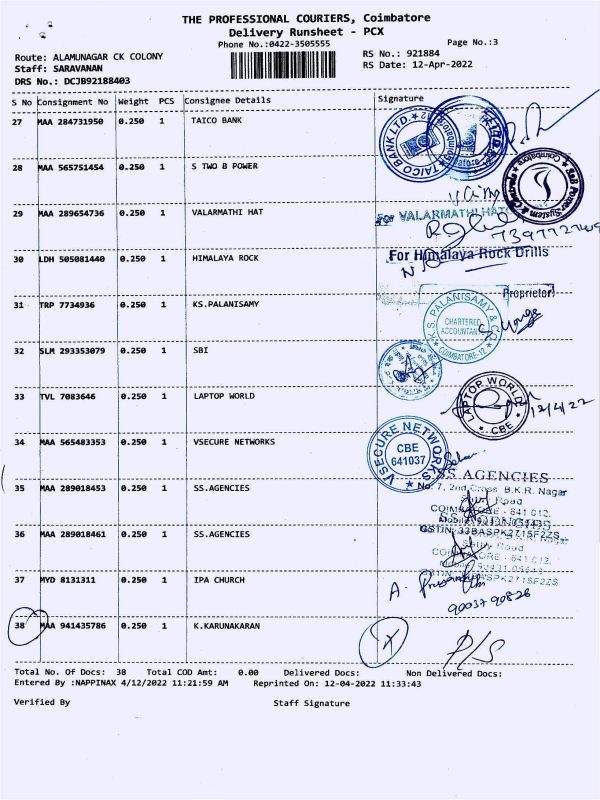 THE PROFESSIONAL COURIERS, Coimbatore
Delivery Runsheet - PCX
Phone No.:0422-3505555
Page No.:3
Route: ALAMUNAGAR CK COLONY
RS No.: 921884
Staff: SARAVANAN
RS Date: 12-Apr-2022
DRS No.: DCJB92188403
S No Consignment No Weight PCS Consignee Details Signature
27 MAA 284731950 0.250 1 TAICO BANK
TAICO BANK LTD.
28 MAA 565751454 0.250 1 S TWO B POWER
S&B Power System & Controls
Coimbatore
29 MAA 289654736 0.250 1 VALARMATHI HAT
For VALARMATHI HAT
30 LDH 505081440 0.250 1 HIMALAYA ROCK
For Himalaya Rock Drills
Proprietor
31 TRP 7734936 0.250 1 KS.PALANISAMY
K.S. PALANISAMY & CO
CHARTERED
ACCOUNTANT
COIMBATORE-12
32 SLM 293353079 0.250 1 SBI
33 TVL 7083646 0.250 1 LAPTOP WORLD
LAPTOP WORLD
CBE
12/4/22
34 MAA 565483353 0.250 1 VSECURE NETWORKS
VSECURE NETWORKS
CBE
641037
35 MAA 289018453 0.250 1 SS.AGENCIES
SS AGENCIES
No. 7, 2nd Cross B.K.R. Nagar
Road
COIMBATORE - 641 012.
36 MAA 289018461 0.250 1 SS.AGENCIES
SS AGENCIES
GSTIN:33BASPK2715F2ZS
37 MYD 8131311 0.250 1 IPA CHURCH
90037 90826
38 MAA 941435786 0.250 1 K.KARUNAKARAN
X P/S
Total No. Of Docs: 38 Total COD Amt: 0.00 Delivered Docs: Non Delivered Docs:
Entered By :NAPPINAX 4/12/2022 11:21:59 AM Reprinted On: 12-04-2022 11:33:43
Verified By Staff Signature